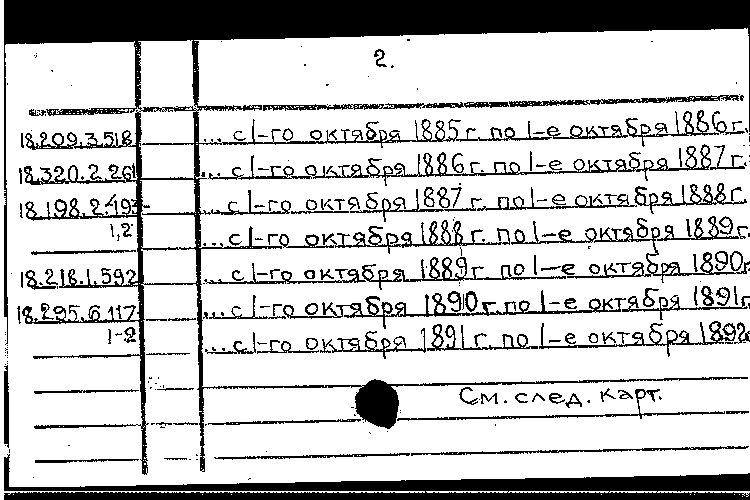 2.
18.209.3.518 ... с 1-го октября 1885 г. по 1-е октября 1886 г.
18.320.2.261 ... с 1-го октября 1886 г. по 1-е октября 1887 г.
18.198.2.493- ... с 1-го октября 1887 г. по 1-е октября 1888 г.
1,2 ... с 1-го октября 1888 г. по 1-е октября 1889 г.
18.218.1.592 ... с 1-го октября 1889 г по 1-е октября 1890 г
18.295.6.117 ... с 1-го октября 1890 г. по 1-е октября 1891 г
1-2 ... с 1-го октября 1891 г. по 1-е октября 1892
См. след. карт.